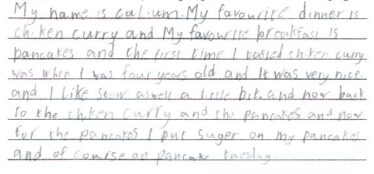 My name is callum. My favourite dinner is
chiken curry and My favourite breakfast is
pancakes and the first time I tasted chiken curry
was when I was four years old and It was very nice
and I like stew aswell a little bit. and now back
to the chiken curry and the pancakes and now
for the pancakes I put suger on my pancakes
and of course on pancake tuesday.